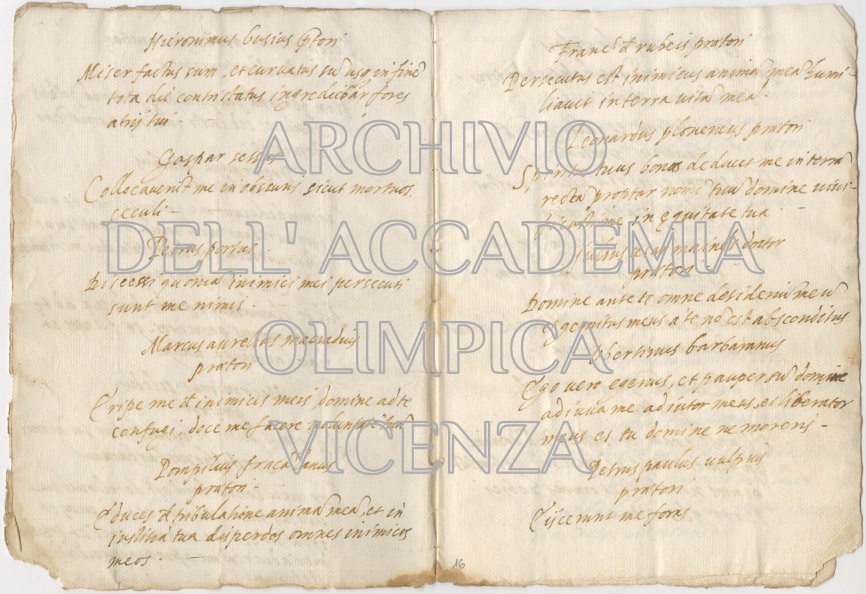 Hieronimus busius ptori
Miser factus sum, et curvatus su usq in fine
tota die contristatus ingrediebar fores
atrij tui
Gaspar
Collocaverut me in obscuris sicut mortuos
seculi -
Petrus portus
Discessi quoniã inimici mei persecuti
sunt me nimis -
Marcus aurelius
pratori
Eripe me d inimicis meis domine ad te
confugi, doce me facere voluntatẽ tuã
Pompilius fracazanus
pratori -
Educes d tribulatione animã meã, et in
justitia tua disperdas omnes inimicos
meos -
Franc d rubeis pratori
Persecutus est inimicus animã meã humi-
liavit in terra vitã meã -
Leonardus plovenius pratori
Spirit tuus bonus deducet me in terrã
recta propter nome tuu domine vivi-
ficasti me in equitate tua
doctor
pratori
Domine ante te omne desideriu meu
et gemitus meus a te no est absconditus
Ubertinus barbaranus
Ego vero egenus, et pauper su domine
adiuva me adiutor meus, et liberator
meus es tu domine ne moreris -
Petrus paulus vulpius
pratori
Eiecerunt me foras
16
ARCHIVIO
DELL' ACCADEMIA
OLIMPICA
VICENZA